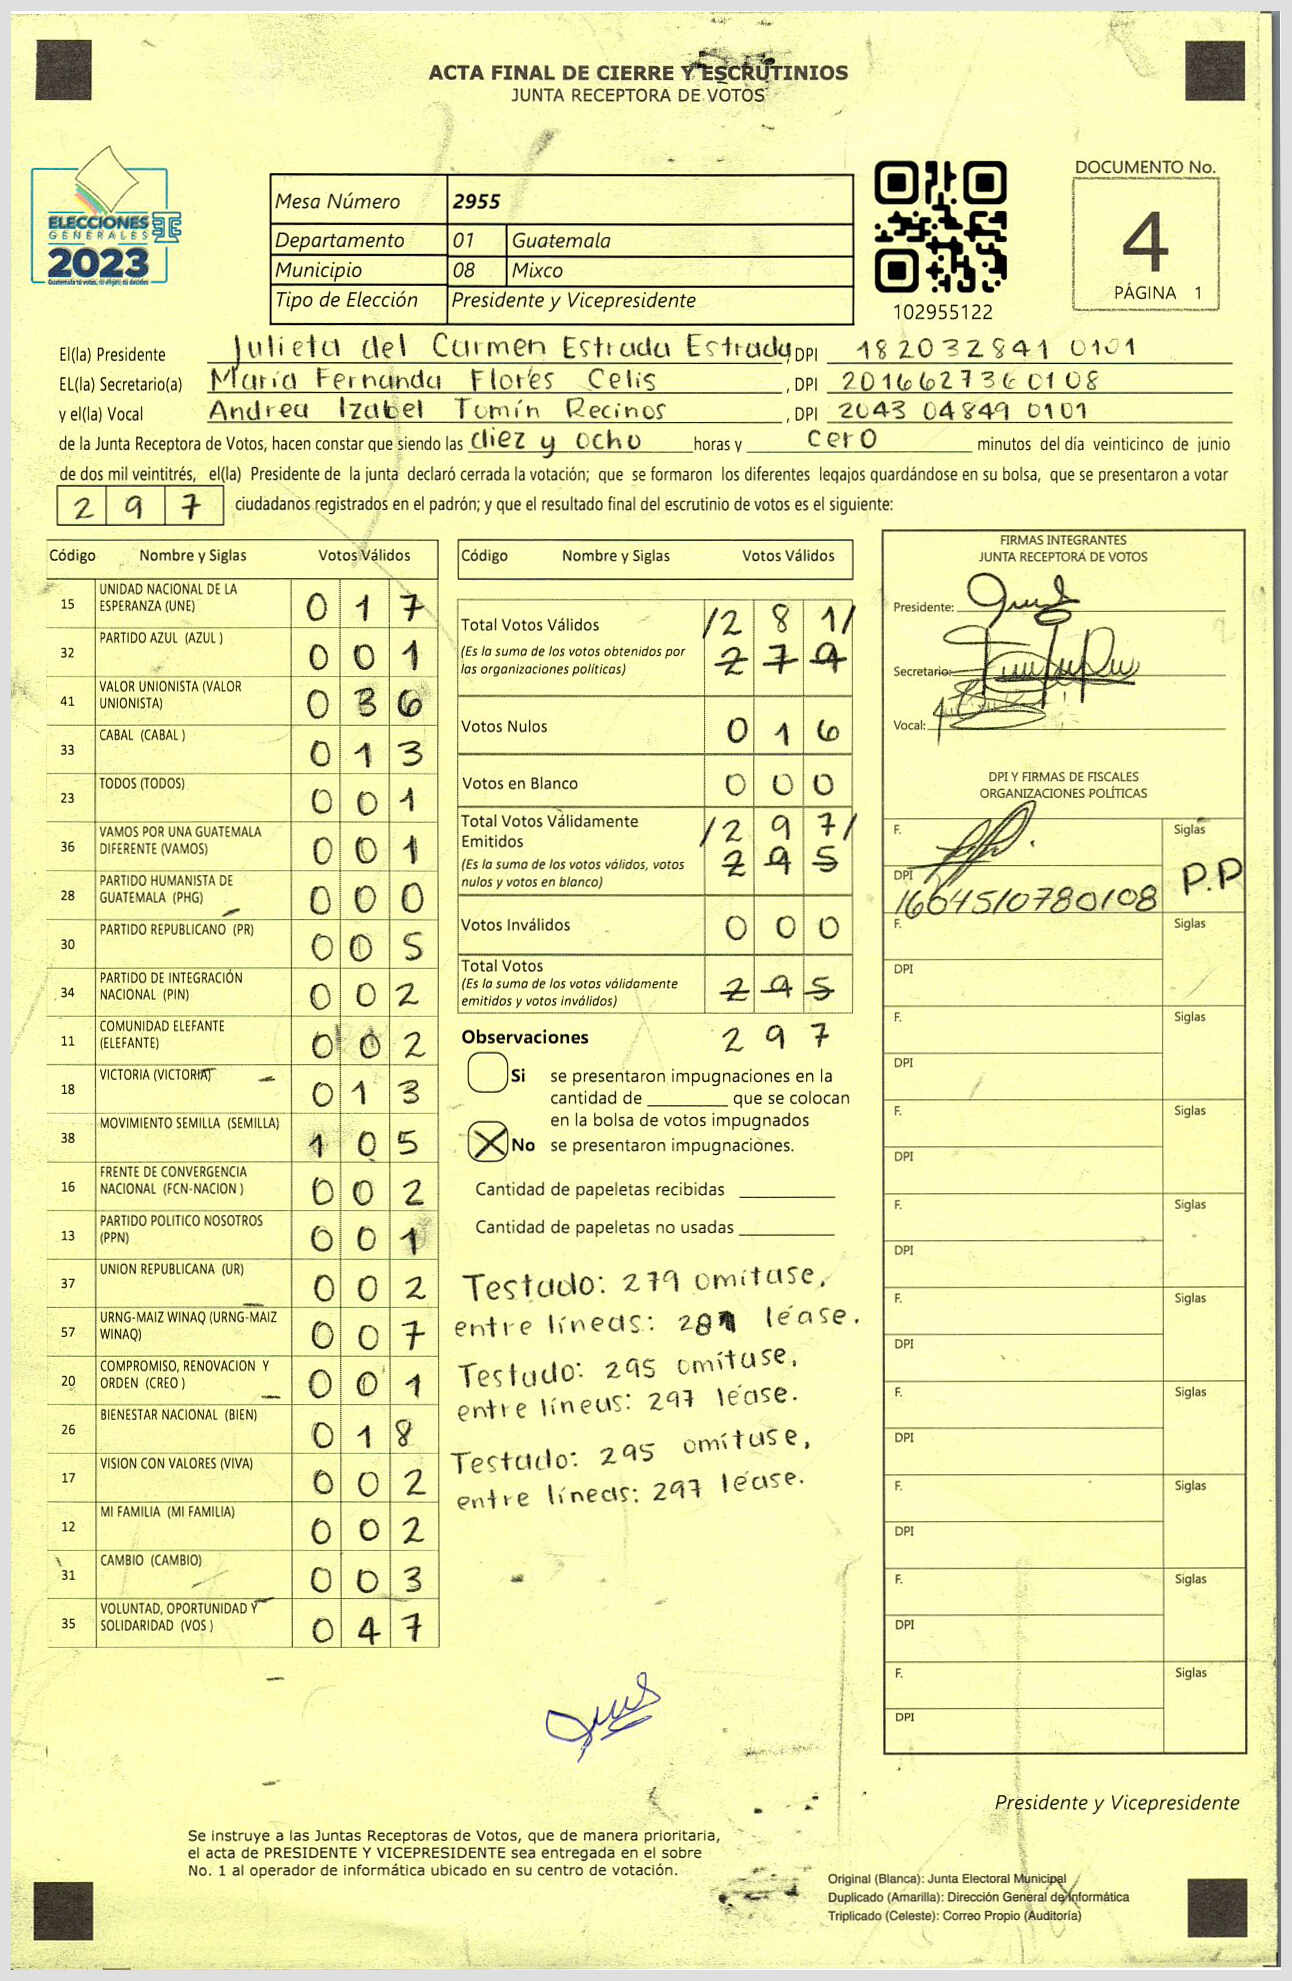 ACTA FINAL DE CIERRE Y ESCRUTINIOS
JUNTA RECEPTORA DE VOTOS
ELECCIONES
GENERALES
2023
Guatemala tú votas, tú eliges, tú decides
Mesa Número 2955
Departamento 01 Guatemala
Municipio 08 Mixco
Tipo de Elección Presidente y Vicepresidente
102955122
DOCUMENTO No.
4
PÁGINA 1
El(la) Presidente Julieta del Carmen Estrada Estrada, DPI 182032841 0101
EL(la) Secretario(a) María Fernanda Flores Celis, DPI 2016627360108
y el(la) Vocal Andrea Izabel Tomín Recinos, DPI 2043 04849 0101
de la Junta Receptora de Votos, hacen constar que siendo las diez y ocho horas y cero minutos del día veinticinco de junio
de dos mil veintitrés, el(la) Presidente de la junta declaró cerrada la votación; que se formaron los diferentes legajos guardándose en su bolsa, que se presentaron a votar
2 9 7 ciudadanos registrados en el padrón; y que el resultado final del escrutinio de votos es el siguiente:
Código Nombre y Siglas Votos Válidos
15 UNIDAD NACIONAL DE LA ESPERANZA (UNE) 0 1 7
32 PARTIDO AZUL (AZUL ) 0 0 1
41 VALOR UNIONISTA (VALOR UNIONISTA) 0 3 6
33 CABAL (CABAL ) 0 1 3
23 TODOS (TODOS) 0 0 1
36 VAMOS POR UNA GUATEMALA DIFERENTE (VAMOS) 0 0 1
28 PARTIDO HUMANISTA DE GUATEMALA (PHG) 0 0 0
30 PARTIDO REPUBLICANO (PR) 0 0 5
34 PARTIDO DE INTEGRACIÓN NACIONAL (PIN) 0 0 2
11 COMUNIDAD ELEFANTE (ELEFANTE) 0 0 2
18 VICTORIA (VICTORIA) 0 1 3
38 MOVIMIENTO SEMILLA (SEMILLA) 1 0 5
16 FRENTE DE CONVERGENCIA NACIONAL (FCN-NACION ) 0 0 2
13 PARTIDO POLITICO NOSOTROS (PPN) 0 0 1
37 UNION REPUBLICANA (UR) 0 0 2
57 URNG-MAIZ WINAQ (URNG-MAIZ WINAQ) 0 0 7
20 COMPROMISO, RENOVACION Y ORDEN (CREO ) 0 0 1
26 BIENESTAR NACIONAL (BIEN) 0 1 8
17 VISION CON VALORES (VIVA) 0 0 2
12 MI FAMILIA (MI FAMILIA) 0 0 2
31 CAMBIO (CAMBIO) 0 0 3
35 VOLUNTAD, OPORTUNIDAD Y SOLIDARIDAD (VOS ) 0 4 7
Código Nombre y Siglas Votos Válidos
Total Votos Válidos /2 8 1/
(Es la suma de los votos obtenidos por las organizaciones políticas) 2 7 9
Votos Nulos 0 1 6
Votos en Blanco 0 0 0
Total Votos Válidamente Emitidos /2 9 7/
(Es la suma de los votos válidos, votos nulos y votos en blanco) 2 9 5
Votos Inválidos 0 0 0
Total Votos
(Es la suma de los votos válidamente emitidos y votos inválidos) 2 9 5
Observaciones 2 9 7
Si se presentaron impugnaciones en la
cantidad de ________ que se colocan
en la bolsa de votos impugnados
X No se presentaron impugnaciones.
Cantidad de papeletas recibidas
Cantidad de papeletas no usadas
Testado: 279 omítase,
entre líneas: 281 léase.
Testado: 295 omítase,
entre líneas: 297 léase.
Testado: 295 omítase,
entre líneas: 297 léase.
FIRMAS INTEGRANTES
JUNTA RECEPTORA DE VOTOS
Presidente:
Secretario:
Vocal:
DPI Y FIRMAS DE FISCALES
ORGANIZACIONES POLÍTICAS
F. Siglas
DPI 1604510780108 P.P
F. Siglas
DPI
F. Siglas
DPI
F. Siglas
DPI
F. Siglas
DPI
F. Siglas
DPI
F. Siglas
DPI
F. Siglas
DPI
F. Siglas
DPI
F. Siglas
DPI
Presidente y Vicepresidente
Se instruye a las Juntas Receptoras de Votos, que de manera prioritaria,
el acta de PRESIDENTE Y VICEPRESIDENTE sea entregada en el sobre
No. 1 al operador de informática ubicado en su centro de votación.
Original (Blanca): Junta Electoral Municipal
Duplicado (Amarilla): Dirección General de Informática
Triplicado (Celeste): Correo Propio (Auditoría)